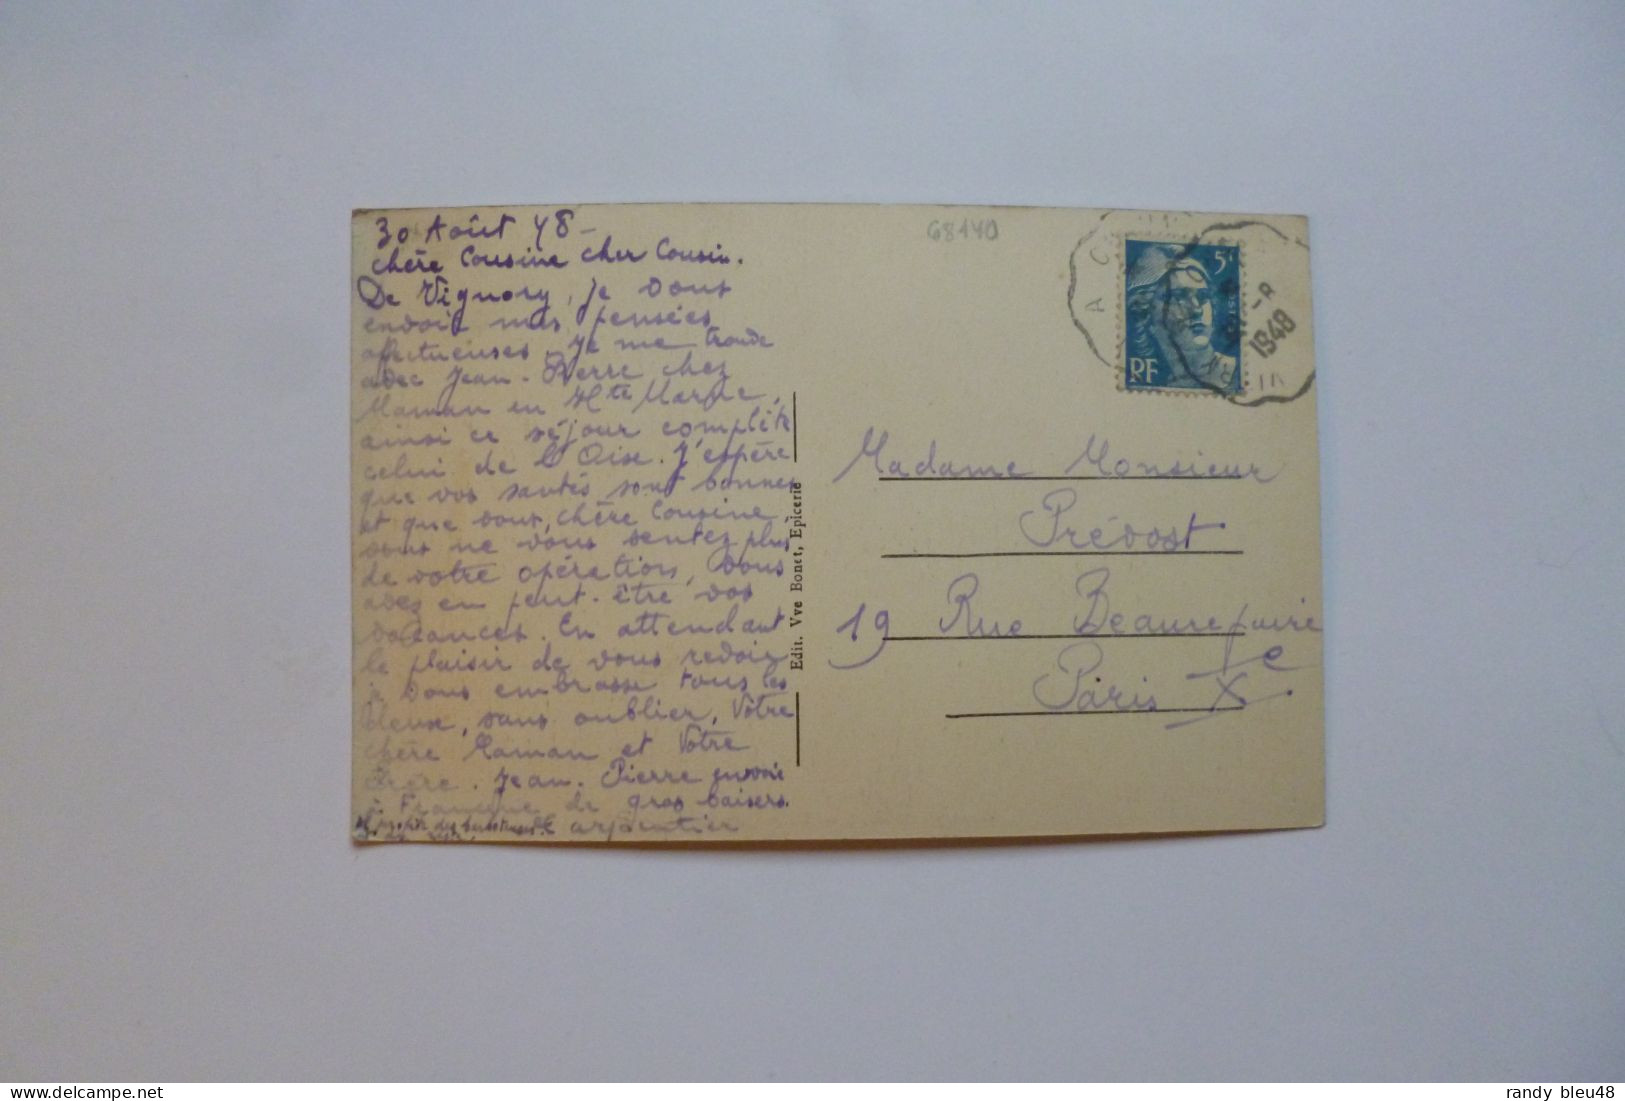 30 Août 48 -
Chère Cousine cher Cousin.
De Vignory, je vous
envoie mes pensées
affectueuses. Je me trouve
avec Jean-Pierre chez
Maman en Hte Marne,
ainsi ce séjour complète
celui de l'Oise. J'espère
que vos santés sont bonnes
et que vous, chère Cousine,
vous ne vous sentez plus
de votre opération, vous
avez eu peut-être vos
vacances. En attendant
le plaisir de vous revoir
je vous embrasse tous les
deux, sans oublier, Vôtre
chère Maman et Votre
Frère. Jean-Pierre envoie
à Francine de gros baisers.
Carpentier
Edit. Vve Bonet, Epicerie
68140
5F
RF
1948
Madame Monsieur
Prévost
19 Rue Beaurepaire
Paris Xe
Delcampe.net
randy_bleu48